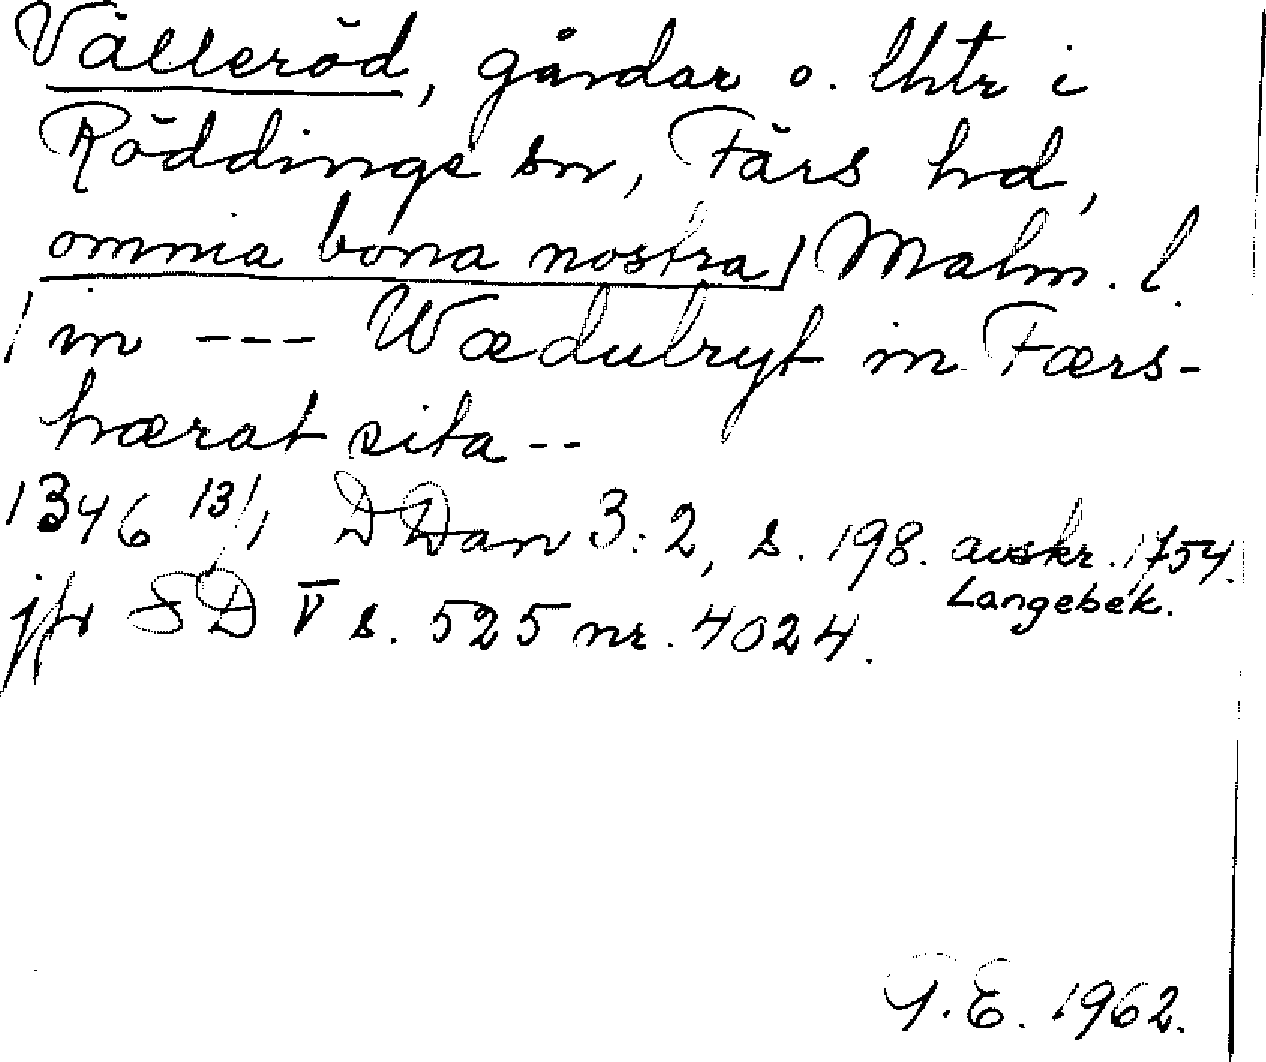 Välleröd, gårdar o. lhtr i
Röddinge sn, Färs hd,
omnia bona nostra/ Malm. l.
/in --- Wædulryt in Færs-
hærat sita --
1346 13/1 DDan 3:2, s. 198. avskr. 1754.
Langebek.
jfr SD V s. 525 nr. 4024.
T.E. 1962.